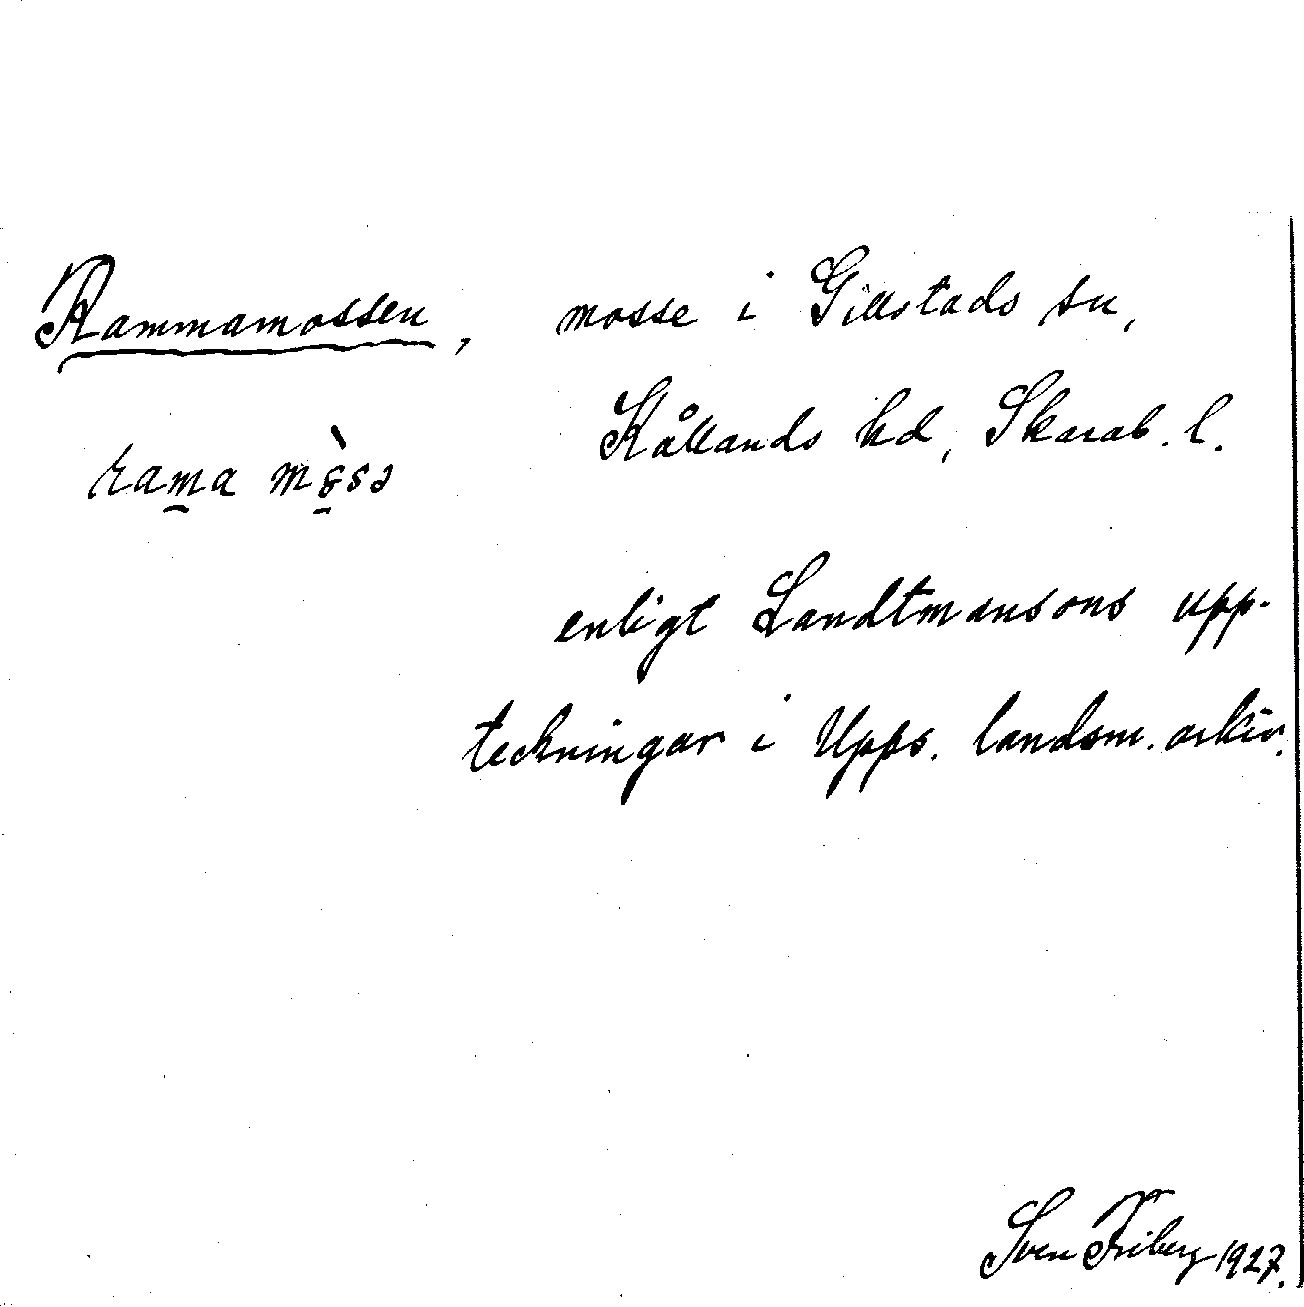 Rammamossen, mosse i Gillstads sn,
Kållands hd, Skarab. l.
rama mòsə
enligt Landtmansons upp-
teckningar i Upps. landsm. arkiv.
Sven Friberg 1927.